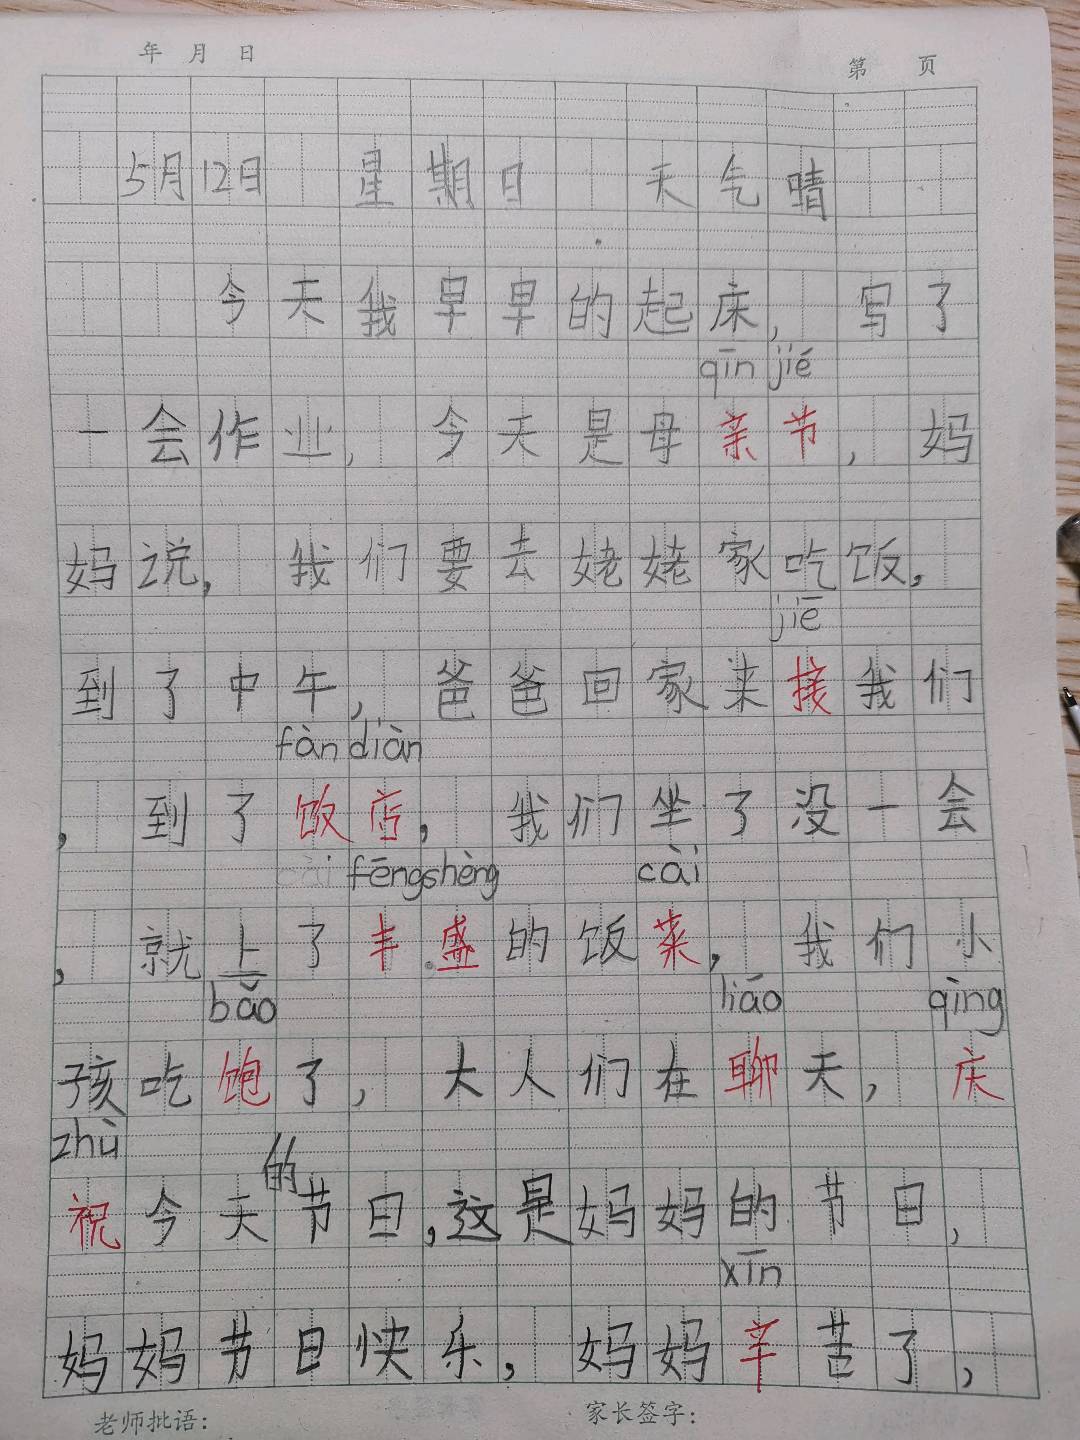 年 月 日
第 页
5月12日 星期日 天气晴
今天我早早的起床,写了
qīn jié
一会作业,今天是母亲节,妈
妈说,我们要去姥姥家吃饭,
jiē
到了中午,爸爸回家来接我们
fàn diàn
,到了饭店,我们坐了没一会
cài fēng shèng cài
,就上了丰盛的饭菜,我们小
bǎo liáo qìng
孩吃饱了,大人们在聊天,庆
zhù
祝今天的节日,这是妈妈的节日,
xīn
妈妈节日快乐,妈妈辛苦了,
老师批语: 家长签字: